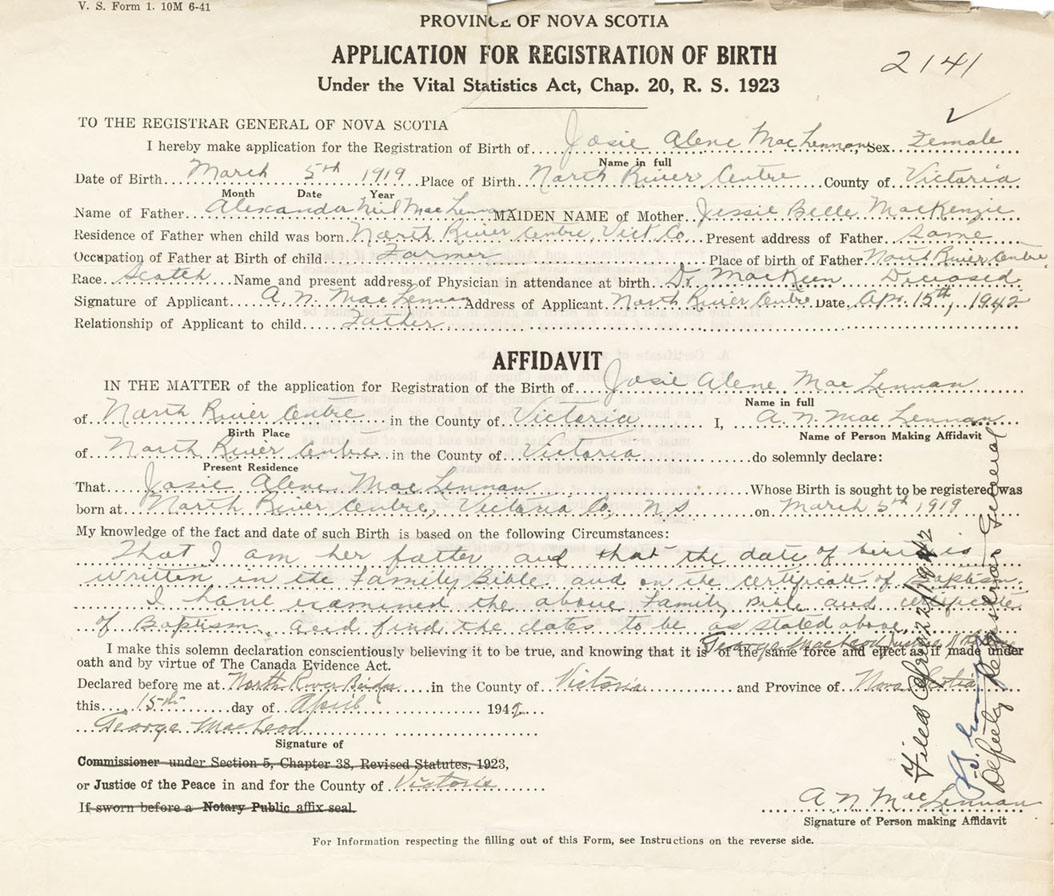 V. S. Form 1. 10M 6-41
PROVINCE OF NOVA SCOTIA
APPLICATION FOR REGISTRATION OF BIRTH
2141
Under the Vital Statistics Act, Chap. 20, R. S. 1923
TO THE REGISTRAR GENERAL OF NOVA SCOTIA
I hereby make application for the Registration of Birth of Josie Alene MacLennan Sex Female
Name in full
Date of Birth March 5th 1919 Place of Birth North River Centre County of Victoria
Month Date Year
Name of Father Alexander Neil MacLennan MAIDEN NAME of Mother Jessie Belle MacKenzie
Residence of Father when child was born North River Centre, Vict. Co. Present address of Father Same
Occupation of Father at Birth of child Farmer Place of birth of Father North River Centre
Race Scotch Name and present address of Physician in attendance at birth Dr MacKeen Deceased
Signature of Applicant A. N. MacLennan Address of Applicant North River Centre Date Apr. 15th, 1942
Relationship of Applicant to child Father
AFFIDAVIT
IN THE MATTER of the application for Registration of the Birth of Josie Alene MacLennan
Name in full
of North River Centre in the County of Victoria I, A. N. MacLennan
Birth Place Name of Person Making Affidavit
of North River Centre in the County of Victoria do solemnly declare:
Present Residence
That Josie Alene MacLennan Whose Birth is sought to be registered was
born at North River Centre, Victoria Co. N.S. on March 5th 1919
My knowledge of the fact and date of such Birth is based on the following Circumstances:
That I am her father and that the date of birth is
written in the family Bible and on the certificate of Baptism.
I have examined the above Family Bible and certificate
of Baptism and find the dates to be as stated above.
George MacLeod
I make this solemn declaration conscientiously believing it to be true, and knowing that it is of the same force and effect as if made under
oath and by virtue of The Canada Evidence Act.
Declared before me at North River Bridge in the County of Victoria and Province of Nova Scotia
this 15th day of April 1942
George MacLeod
Signature of
Commissioner under Section 5, Chapter 38, Revised Statutes, 1923,
or Justice of the Peace in and for the County of Victoria
If sworn before a Notary Public affix seal.
A N MacLennan
Signature of Person making Affidavit
For Information respecting the filling out of this Form, see Instructions on the reverse side.
Filed April 22/1942
Deputy Registrar General